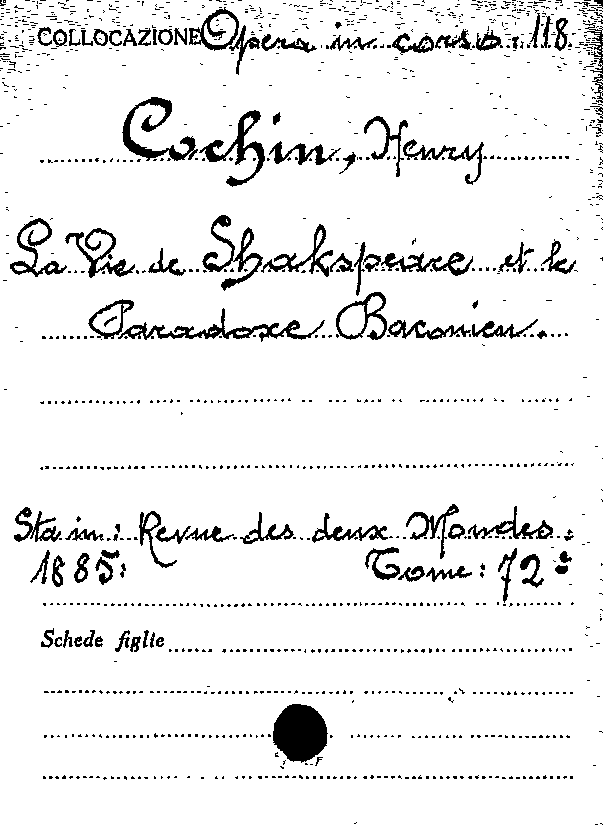 COLLOCAZIONE Opera in corso. 118
Cochin, Henry
La Vie de Shakspeare et le
Paradoxe Baconien.
Sta in: Revue des deux Mondes.
1885: Tome: 72º
Schede figlie